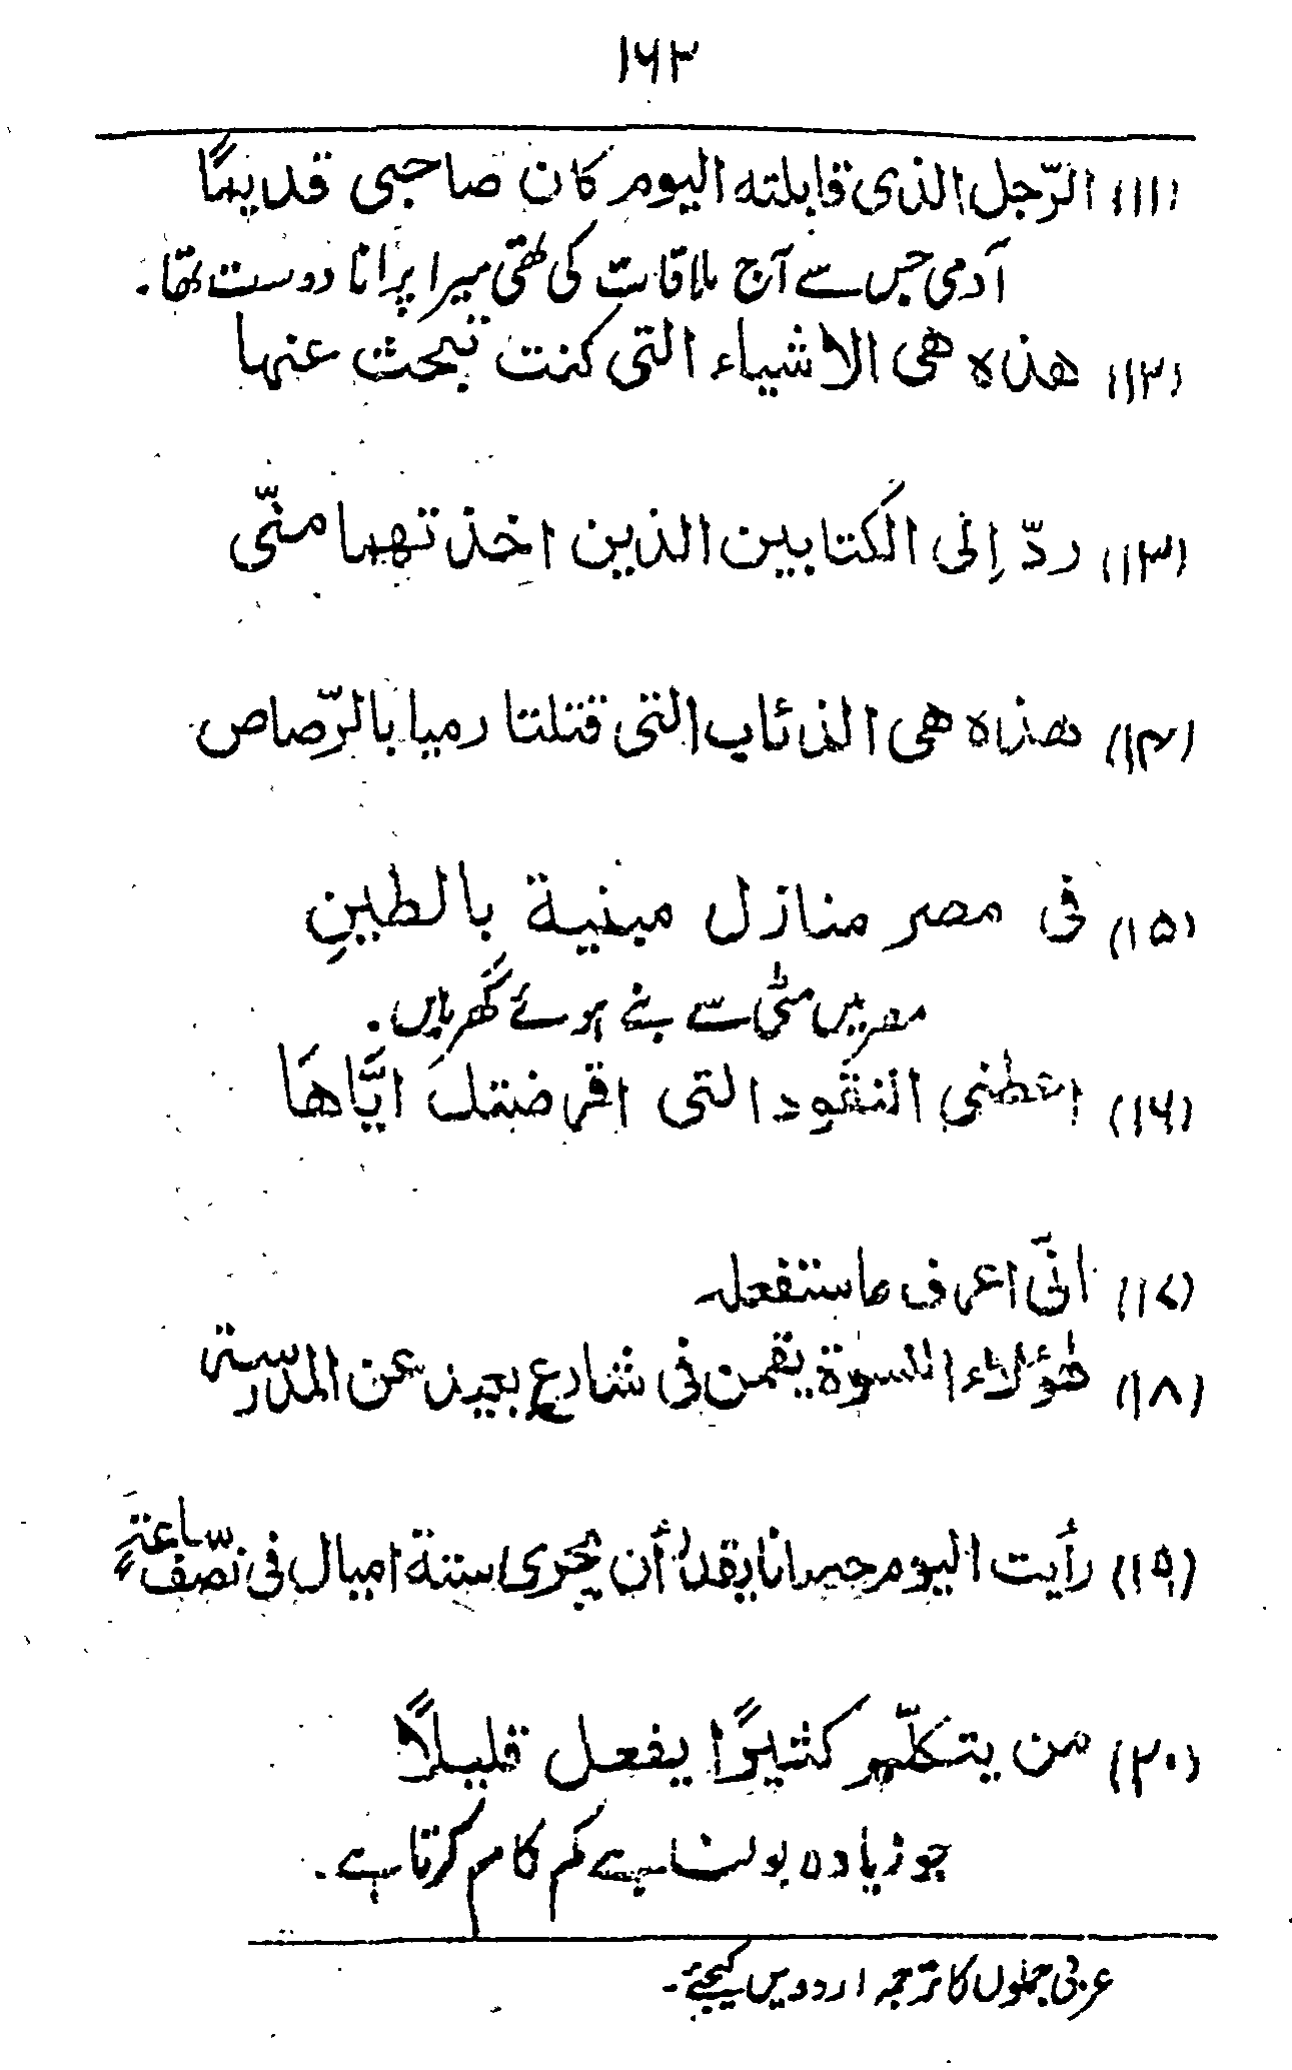 ۱۶۲
(۱۱) الرّجل الذی قابلته الیوم کان صاحبی قدیمًا
آدمی جس سے آج ملاقات کی تھی میرا پرانا دوست تھا۔
(۱۲) هذه هی الاشیاء التی کنت تبحث عنها
(۱۳) ردّ اِلی الکتابین الذین اخذتهما منّی
(۱۴) هذه هی الذئاب التی قتلتا رمیا بالرّصاص
(۱۵) فی مصر منازل مبنیة بالطینِ
مصر میں مٹی سے بنے ہوئے گھر ہیں۔
(۱۶) اعطنی النقود التی اقرضتكَ ایَّاهَا
(۱۷) انّی اعرف ماستفعله
(۱۸) هٰؤلاء النسوة یقمن فی شارع بعید عن المدرسة
(۱۹) رأیت الیوم حصانا یقدر أن یجری ستة امیال فی نصف ساعةٍ
(۲۰) من یتکلّم کثیرًا یفعل قلیلًا
جو زیادہ بولتا ہے کم کام کرتا ہے۔
عربی جملوں کا ترجمہ اردو میں کیجئے۔